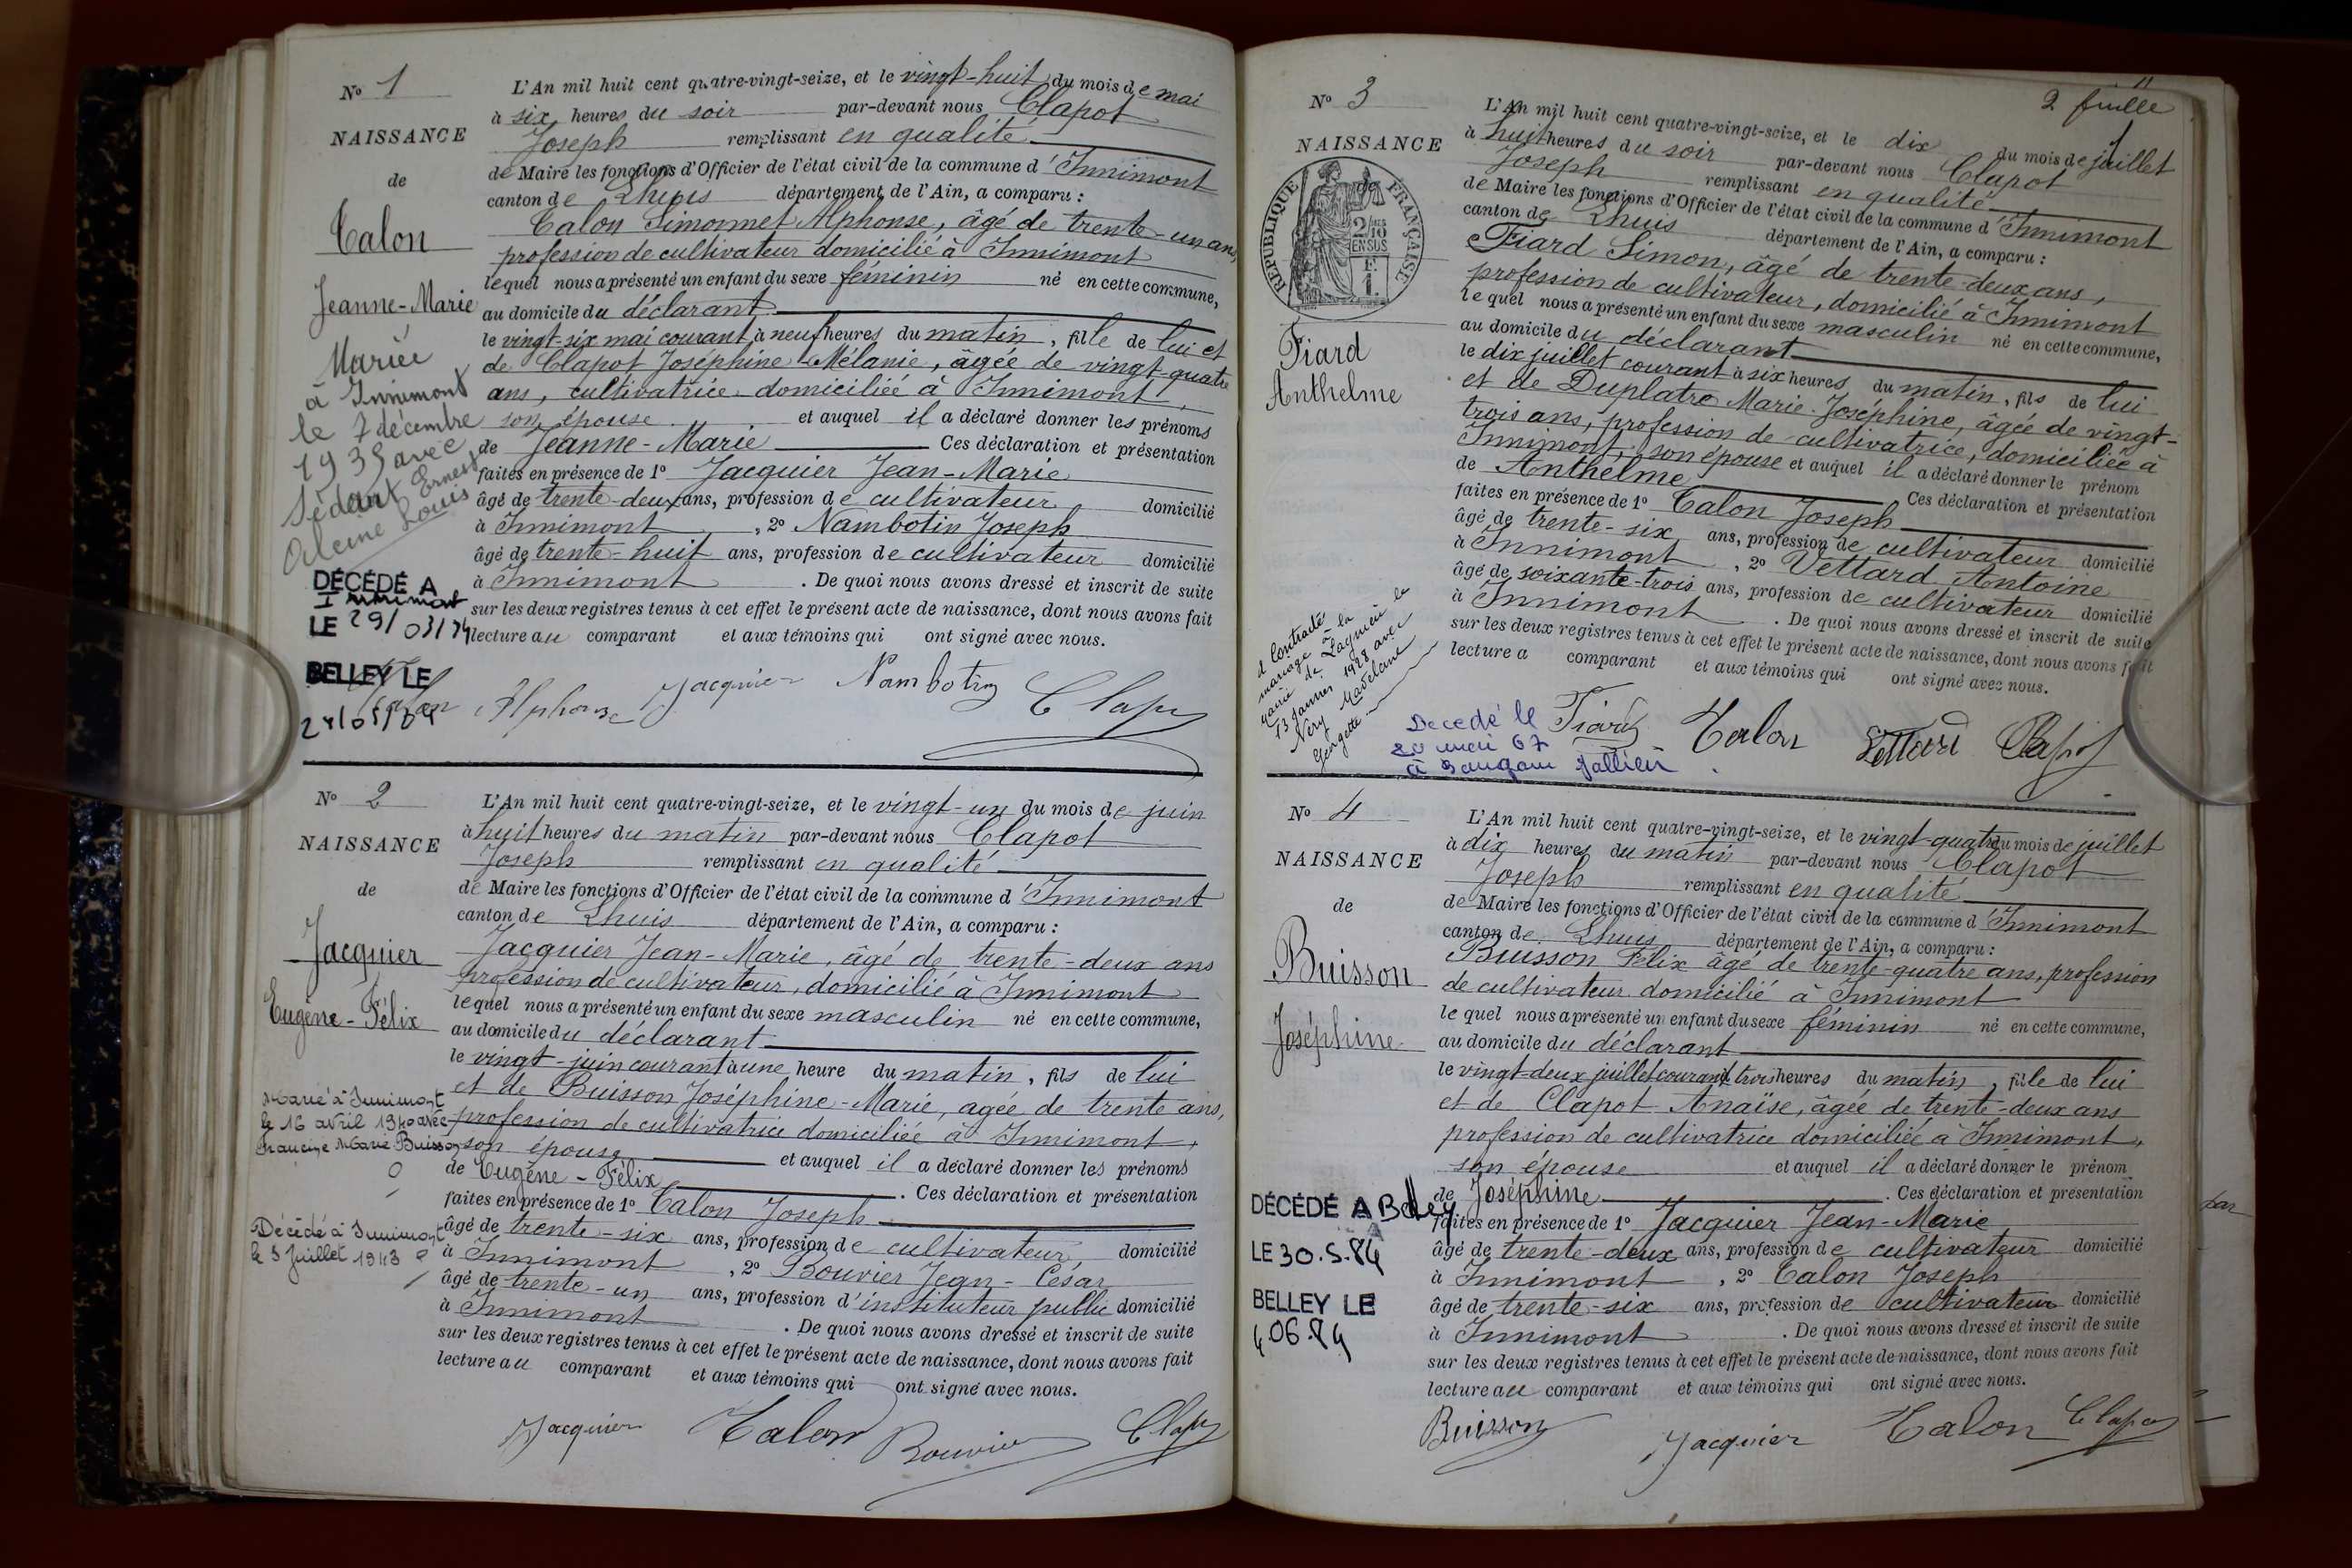 N° 1
NAISSANCE
de
Talon
Jeanne-Marie
Mariée
à Innimont
le 7 décembre
1935 avec
Ernest
Louis
DÉCÉDÉ A
Innimont
LE 29/03/74
BELLEY LE
L'An mil huit cent quatre-vingt-seize, et le vingt-huit du mois de mai
à six heures du soir par-devant nous Clapot
Joseph remplissant en qualité
de Maire les fonctions d'Officier de l'état civil de la commune d'Innimont
canton de Lhuis département de l'Ain, a comparu :
Talon Simonnet Alphonse, âgé de trente-un ans,
profession de cultivateur domicilié à Innimont
lequel nous a présenté un enfant du sexe féminin né en cette commune,
au domicile du déclarant
le vingt-six mai courant à neuf heures du matin, fille de lui et
de Clapot Joséphine Mélanie, âgée de vingt-quatre
ans, cultivatrice domiciliée à Innimont,
son épouse et auquel il a déclaré donner les prénoms
de Jeanne-Marie Ces déclaration et présentation
faites en présence de 1° Jacquier Jean-Marie
âgé de trente-deux ans, profession de cultivateur domicilié
à Innimont, 2° Nambotin Joseph
âgé de trente-huit ans, profession de cultivateur domicilié
à Innimont. De quoi nous avons dressé et inscrit de suite
sur les deux registres tenus à cet effet le présent acte de naissance, dont nous avons fait
lecture au comparant et aux témoins qui ont signé avec nous.
Talon Alphonse Jacquier Nambotin Clapot
N° 2
NAISSANCE
de
Jacquier
Eugène-Félix
Marié à Innimont
le 16 avril 1940 avec
Francine Marie Buisson
Décédé à Innimont
le 3 Juillet 1943
L'An mil huit cent quatre-vingt-seize, et le vingt-un du mois de juin
à huit heures du matin par-devant nous Clapot
Joseph remplissant en qualité
de Maire les fonctions d'Officier de l'état civil de la commune d'Innimont
canton de Lhuis département de l'Ain, a comparu :
Jacquier Jean-Marie, âgé de trente-deux ans
profession de cultivateur, domicilié à Innimont
lequel nous a présenté un enfant du sexe masculin né en cette commune,
au domicile du déclarant
le vingt-juin courant à une heure du matin, fils de lui
et de Buisson Joséphine-Marie, agée de trente ans,
profession de cultivatrice domiciliée à Innimont,
son épouse et auquel il a déclaré donner les prénoms
de Eugène-Félix. Ces déclaration et présentation
faites en présence de 1° Talon Joseph
âgé de trente-six ans, profession de cultivateur domicilié
à Innimont, 2° Bouvier Jean-César
âgé de trente-un ans, profession d'instituteur public domicilié
à Innimont. De quoi nous avons dressé et inscrit de suite
sur les deux registres tenus à cet effet le présent acte de naissance, dont nous avons fait
lecture au comparant et aux témoins qui ont signé avec nous.
Jacquier Talon Bouvier Clapot
2 fuille
N° 3
NAISSANCE
RÉPUBLIQUE FRANÇAISE
2/10 EN SUS
Fiard
Anthelme
a Contracté
mariage à la
mairie de Lagnieu le
13 Janvier 1928 avec
Nery Madelane
Georgette
Decedé le
20 mai 67
à Bourgoin Jallieu
L'An mil huit cent quatre-vingt-seize, et le dix du mois de juillet
à huit heures du soir par-devant nous Clapot
Joseph remplissant en qualité
de Maire les fonctions d'Officier de l'état civil de la commune d'Innimont
canton de Lhuis département de l'Ain, a comparu :
Fiard Simon, âgé de trente-deux ans,
profession de cultivateur, domicilié à Innimont
lequel nous a présenté un enfant du sexe masculin né en cette commune,
au domicile du déclarant
le dix juillet courant à six heures du matin, fils de lui
et de Duplatre Marie-Joséphine, âgée de vingt-
trois ans, profession de cultivatrice, domiciliée à
Innimont, son épouse et auquel il a déclaré donner le prénom
de Anthelme Ces déclaration et présentation
faites en présence de 1° Talon Joseph
âgé de trente-six ans, profession de cultivateur domicilié
à Innimont, 2° Vettard Antoine
âgé de soixante-trois ans, profession de cultivateur domicilié
à Innimont. De quoi nous avons dressé et inscrit de suite
sur les deux registres tenus à cet effet le présent acte de naissance, dont nous avons fait
lecture a comparant et aux témoins qui ont signé avec nous.
Fiard Talon Vettard Clapot
N° 4
NAISSANCE
de
Buisson
Joséphine
DÉCÉDÉ A Belley
LE 30.5.84
BELLEY LE
4.06.84
L'An mil huit cent quatre-vingt-seize, et le vingt-quatre du mois de juillet
à dix heures du matin par-devant nous Clapot
Joseph remplissant en qualité
de Maire les fonctions d'Officier de l'état civil de la commune d'Innimont
canton de Lhuis département de l'Ain, a comparu :
Buisson Félix âgé de trente-quatre ans, profession
de cultivateur domicilié à Innimont
lequel nous a présenté un enfant du sexe féminin né en cette commune,
au domicile du déclarant
le vingt-deux juillet courant à trois heures du matin, fille de lui
et de Clapot Anaïse, âgée de trente-deux ans
profession de cultivatrice domiciliée à Innimont,
son épouse et auquel il a déclaré donner le prénom
de Joséphine. Ces déclaration et présentation
faites en présence de 1° Jacquier Jean-Marie
âgé de trente-deux ans, profession de cultivateur domicilié
à Innimont, 2° Talon Joseph
âgé de trente-six ans, profession de cultivateur domicilié
à Innimont. De quoi nous avons dressé et inscrit de suite
sur les deux registres tenus à cet effet le présent acte de naissance, dont nous avons fait
lecture au comparant et aux témoins qui ont signé avec nous.
Buisson Jacquier Talon Clapot
par